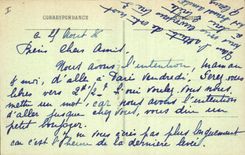 I
CORRESPONDANCE
Le 21 Aout 8
Biens Chers Amis.
Nous avons l'intention, maman
& moi, d'aller à Paris Vendredi. Serez vous
libres vers 2h 1/2 ? Si oui voulez vous nous
mettre un mot, car nous avons l'intention
d'aller jusque chez vous, vous dire un
petit bonjour.
Je ne vous écris pas plus longuement
car c'est l'heure de la dernière levée.